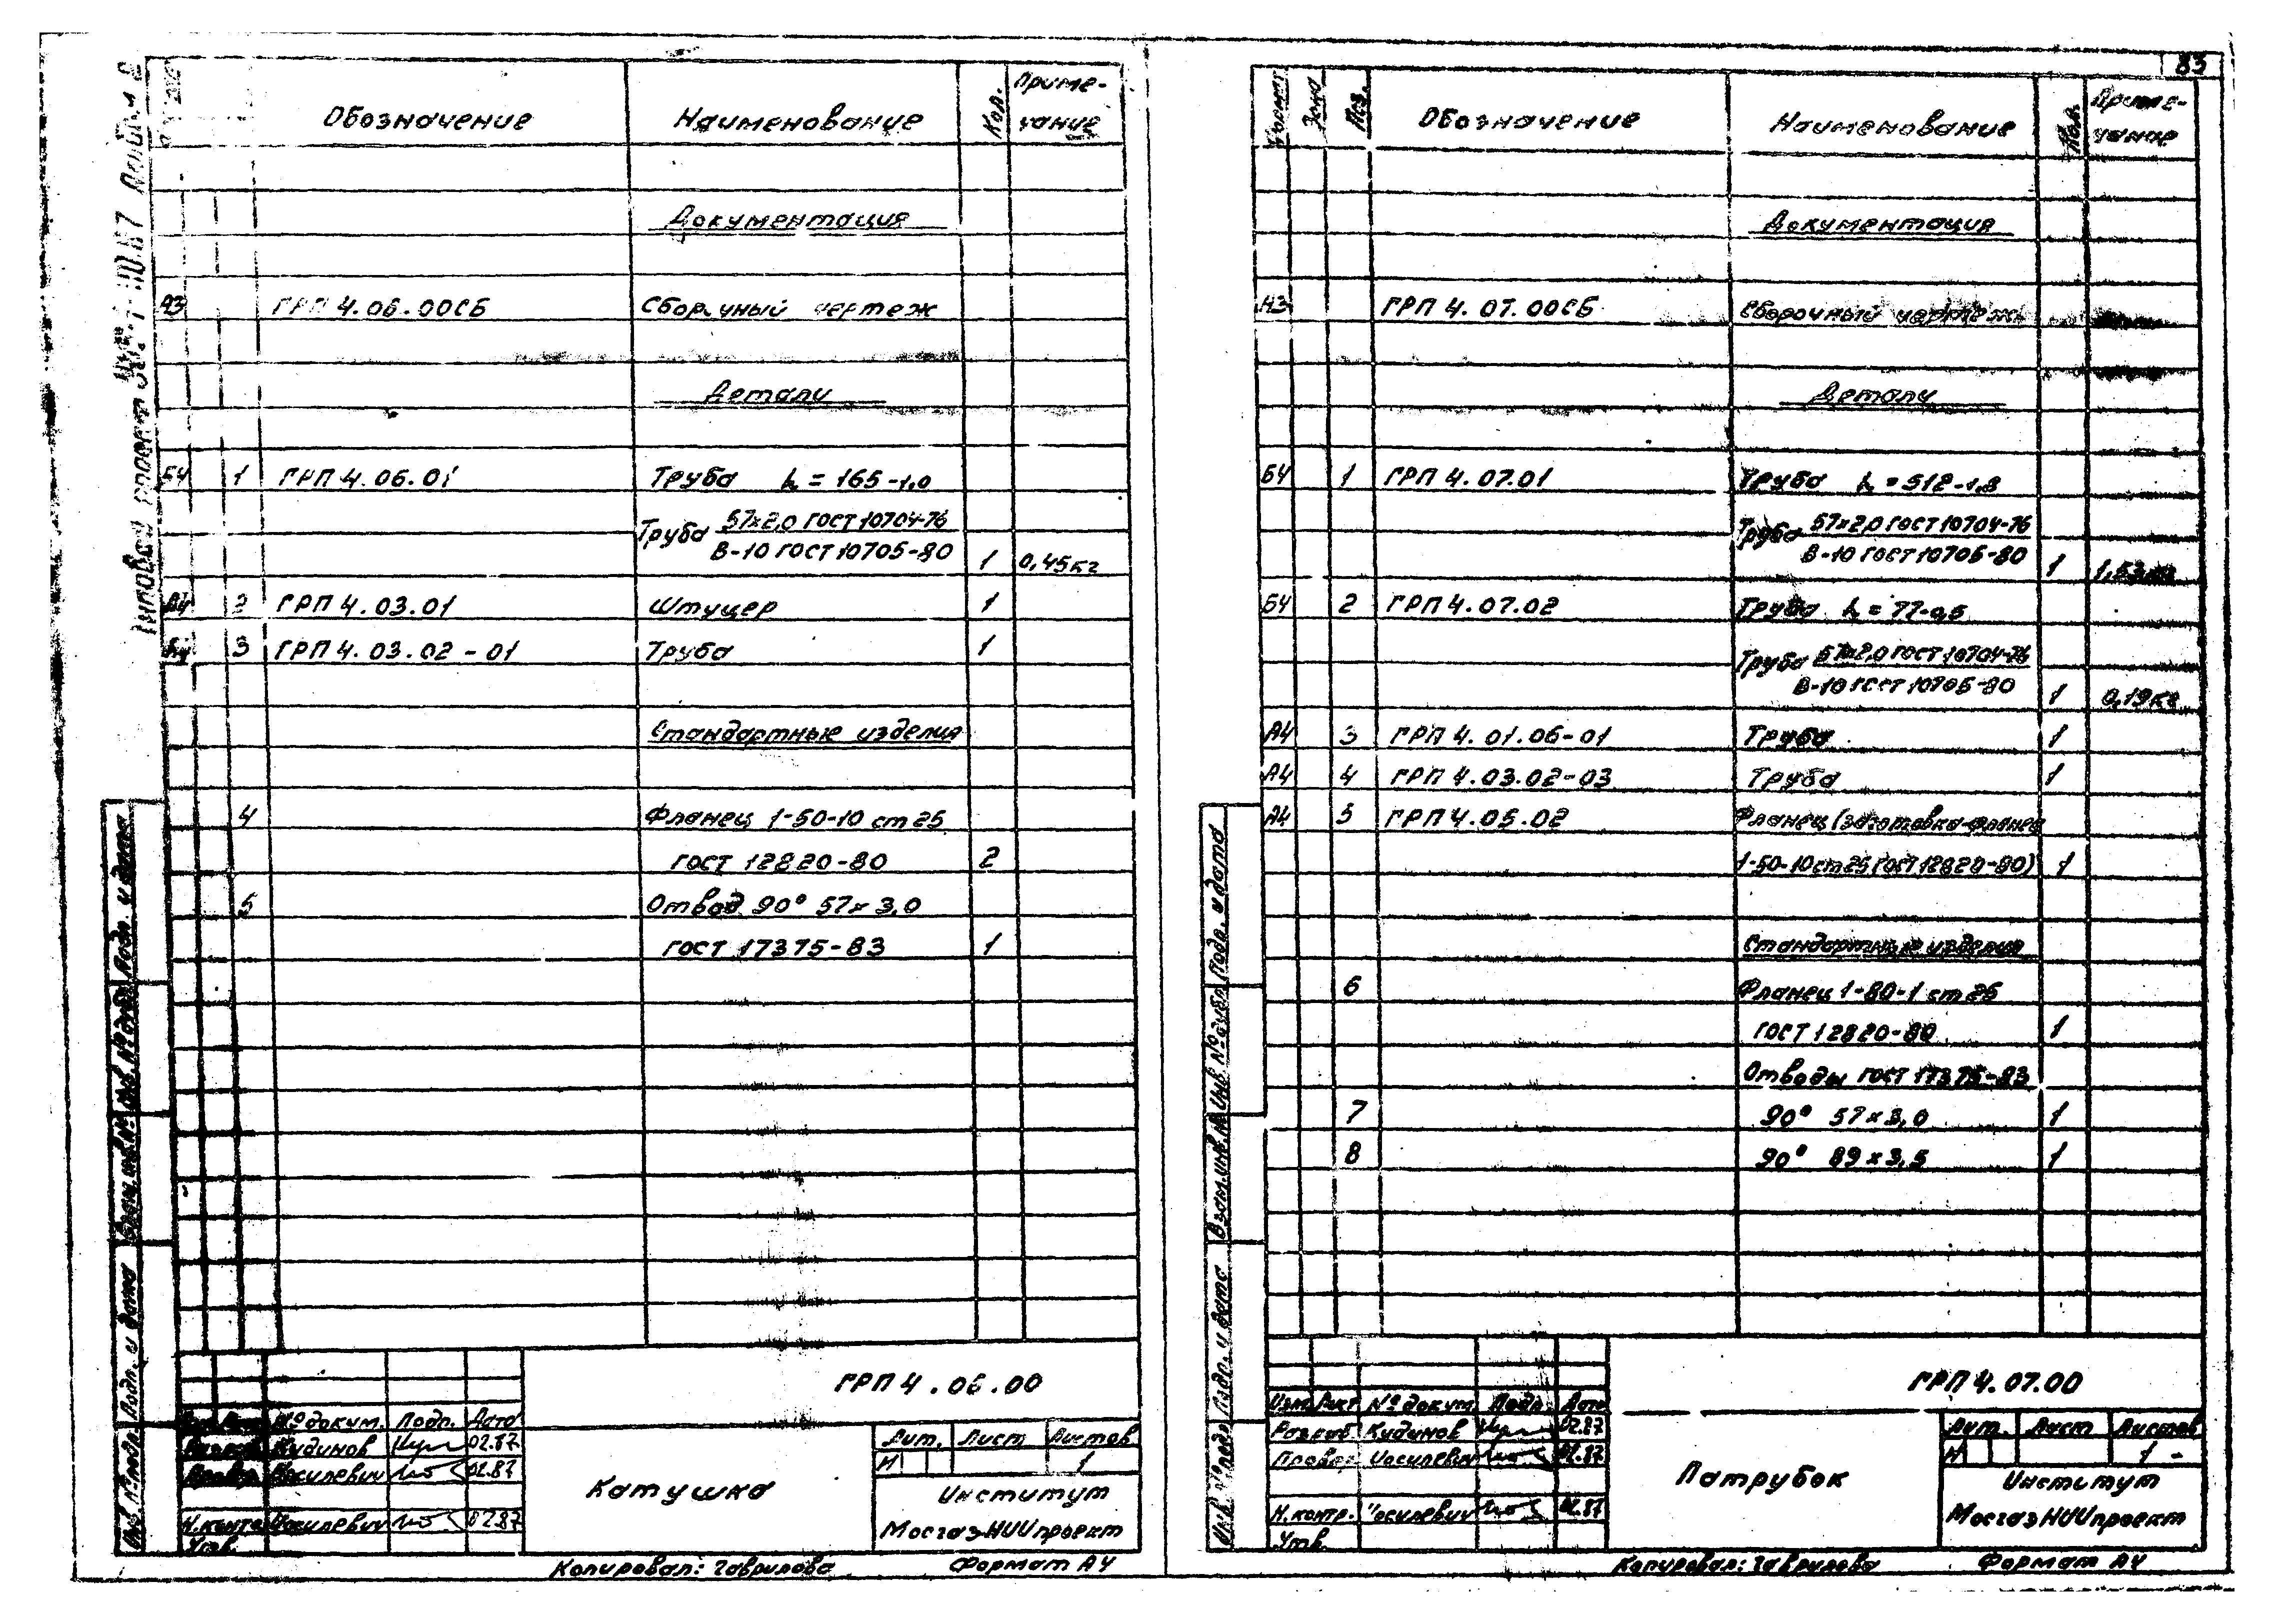 83
Обозначение Наименование Кол. Приме-
чание
Документация
А3 ГРП 4.06.00СБ Сборочный чертеж
Детали
БЧ 1 ГРП 4.06.01 Труба L = 165-1,0
Труба 57×2,0 ГОСТ 10704-76
В-10 ГОСТ 10705-80 1 0,45кг
А4 2 ГРП 4.03.01 Штуцер 1
А4 3 ГРП 4.03.02-01 Труба 1
Стандартные изделия
4 Фланец 1-50-10 ст 25
ГОСТ 12820-80 2
5 Отвод 90° 57×3,0
ГОСТ 17375-83 1
Типовой проект
Инв. № подл. Подп. и дата Взам. инв. № Инв. № дубл. Подп. и дата
ГРП 4.06.00
№ докум. Подп. Дата
Разраб. Кудинов 02.87
Провер. Иосилевич 02.87
Н.контр. Иосилевич 02.87
Утв.
Катушка
Лит. Лист Листов
И 1
Институт
МосгазНИИпроект
Копировал: Гаврилова Формат А4
Формат Зона Поз. Обозначение Наименование Кол. Приме-
чание
Документация
А3 ГРП 4.07.00СБ Сборочный чертеж
Детали
БЧ 1 ГРП 4.07.01 Труба L = 512-1,8
Труба 57×2,0 ГОСТ 10704-76
В-10 ГОСТ 10705-80 1 1,53кг
БЧ 2 ГРП 4.07.02 Труба L = 77-0,5
Труба 57×2,0 ГОСТ 10704-76
В-10 ГОСТ 10705-80 1 0,19кг
А4 3 ГРП 4.01.06-01 Труба 1
А4 4 ГРП 4.03.02-03 Труба 1
А4 5 ГРП 4.05.02 Фланец (заготовка-фланец
1-50-10 ст 25 ГОСТ 12820-80) 1
Стандартные изделия
6 Фланец 1-80-1 ст 25
ГОСТ 12820-80 1
Отводы ГОСТ 17375-83
7 90° 57×3,0 1
8 90° 89×3,5 1
Инв. № подл. Подп. и дата Взам. инв. № Инв. № дубл. Подп. и дата
ГРП 4.07.00
Изм. Лист № докум. Подп. Дата
Разраб. Кудинов 02.87
Провер. Иосилевич 02.87
Н.контр. Иосилевич 02.87
Утв.
Патрубок
Лит. Лист Листов
И 1
Институт
МосгазНИИпроект
Копировал: Гаврилова Формат А4